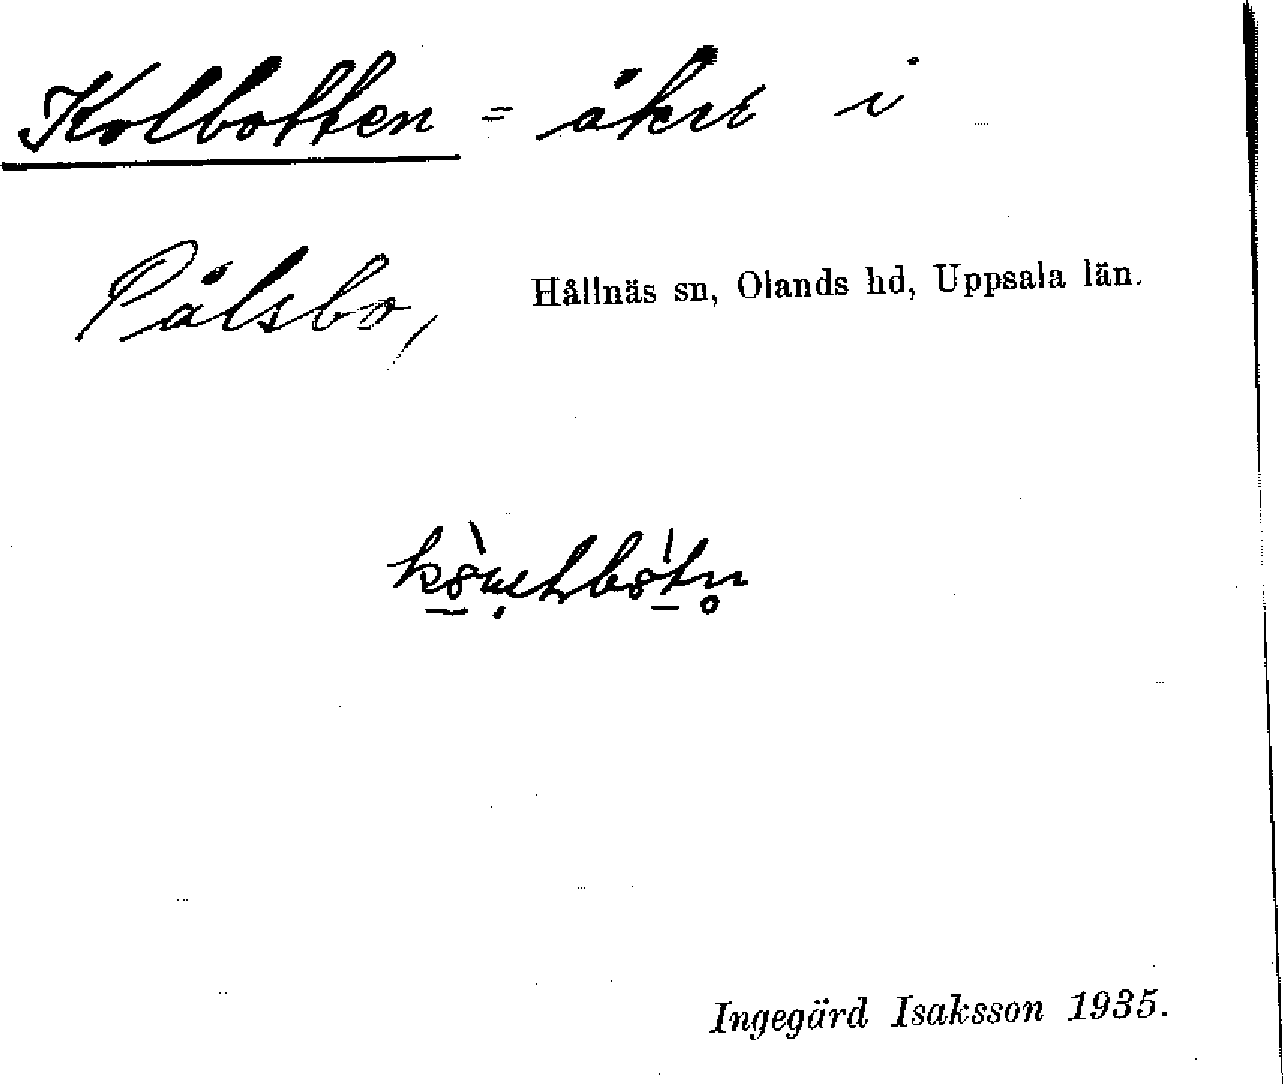 Kolbotten = åker i
Pålsbo, Hållnäs sn, Olands hd, Uppsala län.
Ingegärd Isaksson 1935.